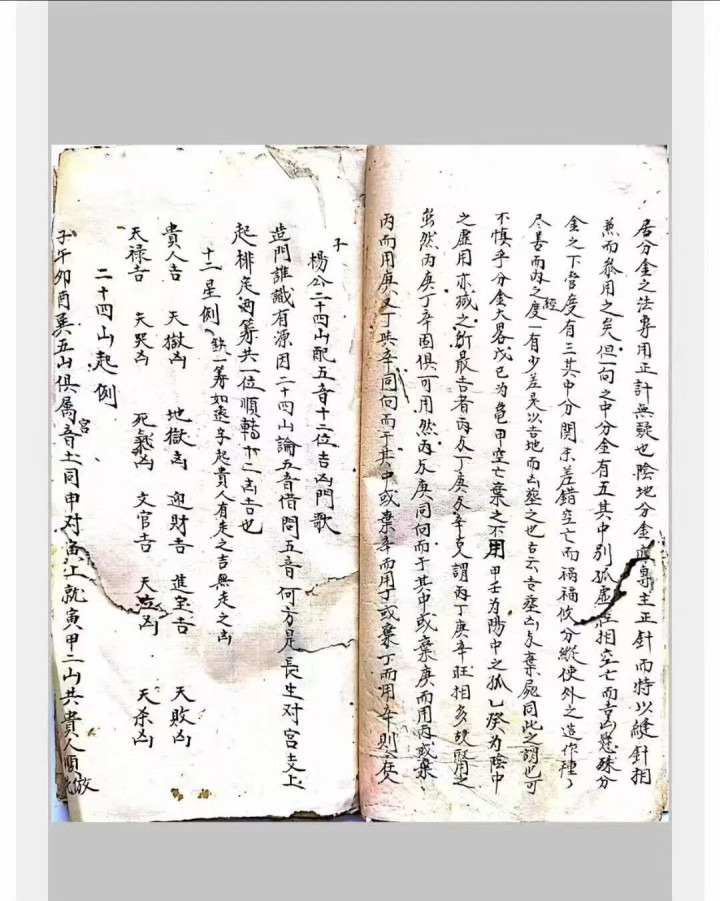 居分金之法專用正計無疑也陰地分金 專主正針而特以縫針相
兼而叅用之矣但一向之中分金有五其中別孤虛旺相空亡而吉凶懸殊分
金之下管度有三其中分関未差錯空亡而禍福攸分縱使外之造作種々
尽善而内之經度一有少差是以吉地而凶塟之也古云吉塟凶与棄屍同此之謂也可
不慎乎分金大畧戊己为龜甲空亡棄之不用甲壬为陽中之孤乙癸为陰中
之虛用亦 之 最吉者丙 丁庚 辛 謂丙丁庚辛旺相 故 用之
虽然丙庚丁辛固俱可用然丙 庚同向而于其中或棄庚而用丙或棄
丙而用庚又丁 辛同向而于其中或棄辛而用丁或棄丁而用辛則在
于
楊公二十四山配五音十二位吉凶門歌
造門誰識有源因二十四山論五音借問五音何方是長生对宮支上
起排定 筭共一位順轉十二凶吉也
十二星例 訣一筹如 字起貴人有走之吉無走之凶
貴人吉 天獄凶 地獄凶 迎財吉 進宝吉 天敗凶
天禄吉 天哭凶 死 凶 文官吉 天 凶 天杀凶
二十四山起例
子午卯酉巽五山俱属宮音土同申对 上就寅甲二山共貴人順 倣